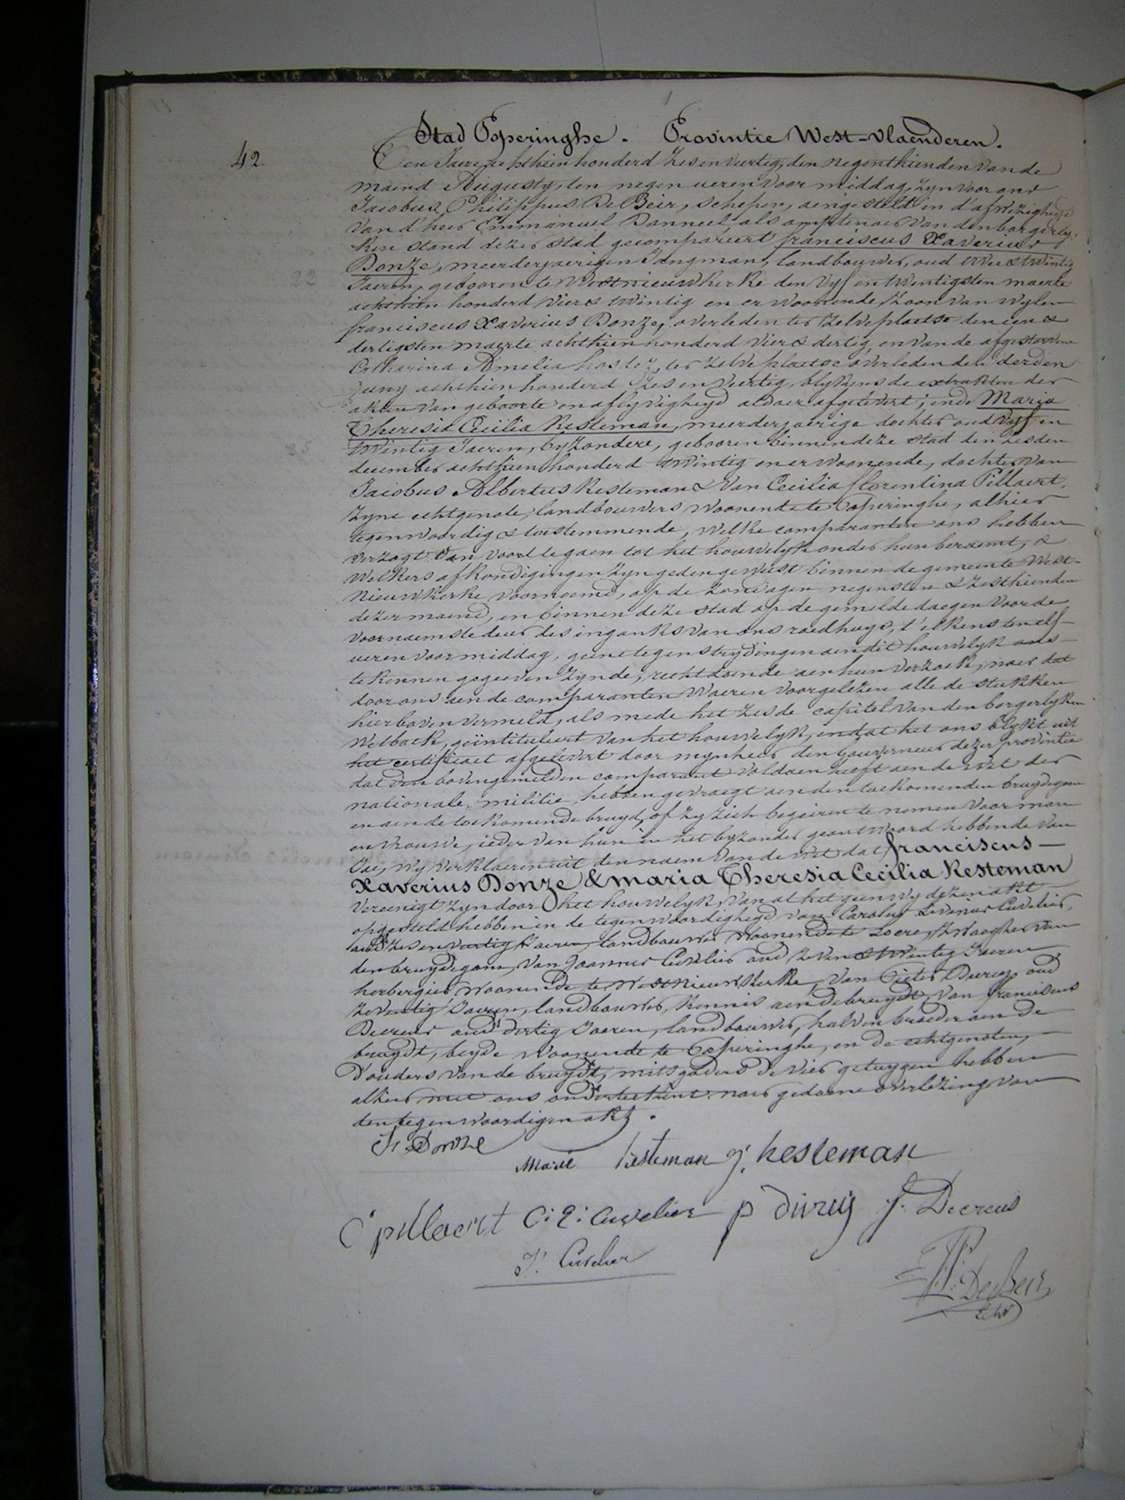 Stad Poperinghe. Provintie West-Vlaenderen.
42
Den Jaere achthien honderd zes en veertig, den negenthienden van de
maend Augusty, ten negen ueren voor middag, zyn voor ons
Jacobus Philippus De Beir, schepen, aengesteld in d'afwezigheyd
van d'heer Emmanuel Danneel als amptenaer van den borgerly-
ken stand dezer stad gecompareert franciscus Xaverius
Donze, meerderjaerigen Jongman, landbouwer, oud twee & twintig
Jaeren, gebooren te Westnieuwkerke den vyf en twintigsten maerte
achthien honderd vier & twintig en er woonende, zoon van wylen
franciscus Xaverius Donze, overleden ter zelve plaetse den een &
dertigsten maerte achthien honderd vier & dertig, en van de afgestorven
Catharina Amelia ter zelve plaetse overleden den derden
Juny achthien honderd zes en veertig, blykens de extrakten der
akten van geboorte en aflyvigheyd aldaer afgelevert; ende Maria
Theresia Cecilia Kesteman, meerderjaerige dochter oud vyf en
twintig Jaeren, byzondere, gebooren binnen deze stad den zesden
december achthien honderd twintig en er woonende, dochter van
Jacobus Albertus Kesteman & van Cecilia florentina Pillaert,
zyne echtgenote, landbouwers woonende te Poperinghe, alhier
tegenwoordig & toestemmende, welke comparanten ons hebben
verzogt van voort te gaen tot het houwelyk onder hun beraemt, &
welkers afkondigingen zyn geden geweest binnen de gemeente West-
nieuwkerke, voornoemd, op de zondagen negensten & zesthienden
dezer maend, en binnen deze stad op de gemelde daegen voor de
voornaemste deur des ingangs van ons raedhuys, t'elkens ten elf
ueren voor middag, geene tegenstrydingen aen dit houwelyk aen ons
te kennen gegeven zynde, recht doende aen hun verzoek, naer dat
door ons aen de comparanten waeren voorgelezen alle de stukken
hierboven vermeld, als mede het zesde capitel van den borgerlyken
Wetboek, geïntituleert van het houwelyk, en dat het ons blykt uit
het certificaet afgelevert door mynheer den Gouverneur dezer provintie
dat den bovengemelden comparant voldaen heeft aen de wet der
nationale militie, hebben gevraegt aen den toekomenden bruydegom
en aen de toekomende bruyd, of zy zich begeiren te nemen voor man
en vrouwe, ieder van hun in het byzonder geantwoord hebbende van
Jae, wy verklaeren uit den naem van de wet dat franciscus
Xaverius Donze & maria Theresia Cecilia Kesteman
vereenigt zyn door het houwelyk, van al het geen wy dezen akt
opgesteld hebben in de tegenwoordigheyd van Carolus Livinus Cuvelier,
oud zes en veertig Jaeren, landbouwer woonende te Locre, zwaegher van
den bruydegom, van Joannes Cuvelier oud zeven & twintig Jaeren
herbergier woonende te Westnieuwkerke, van Pieter Duruy oud
zeventig Jaeren, landbouwer, kennis aen de bruydt, van franciscus
Decreus oud dertig Jaeren, landbouwer, halven broeder aen de
bruydt, beyde woonende te Poperinghe, en de echtgenoten,
d'ouders van de bruydt, mitsgaders de vier getuygen hebben
alhier met ons onderteekent naer gedaene overlezing van
den tegenwoordigen akt.
fr. Donze
Marie Kesteman J. Kesteman
C pillaert C: L: Cuvelier p duruy f. Decreus
J. Cuvelier
J P. De Beir